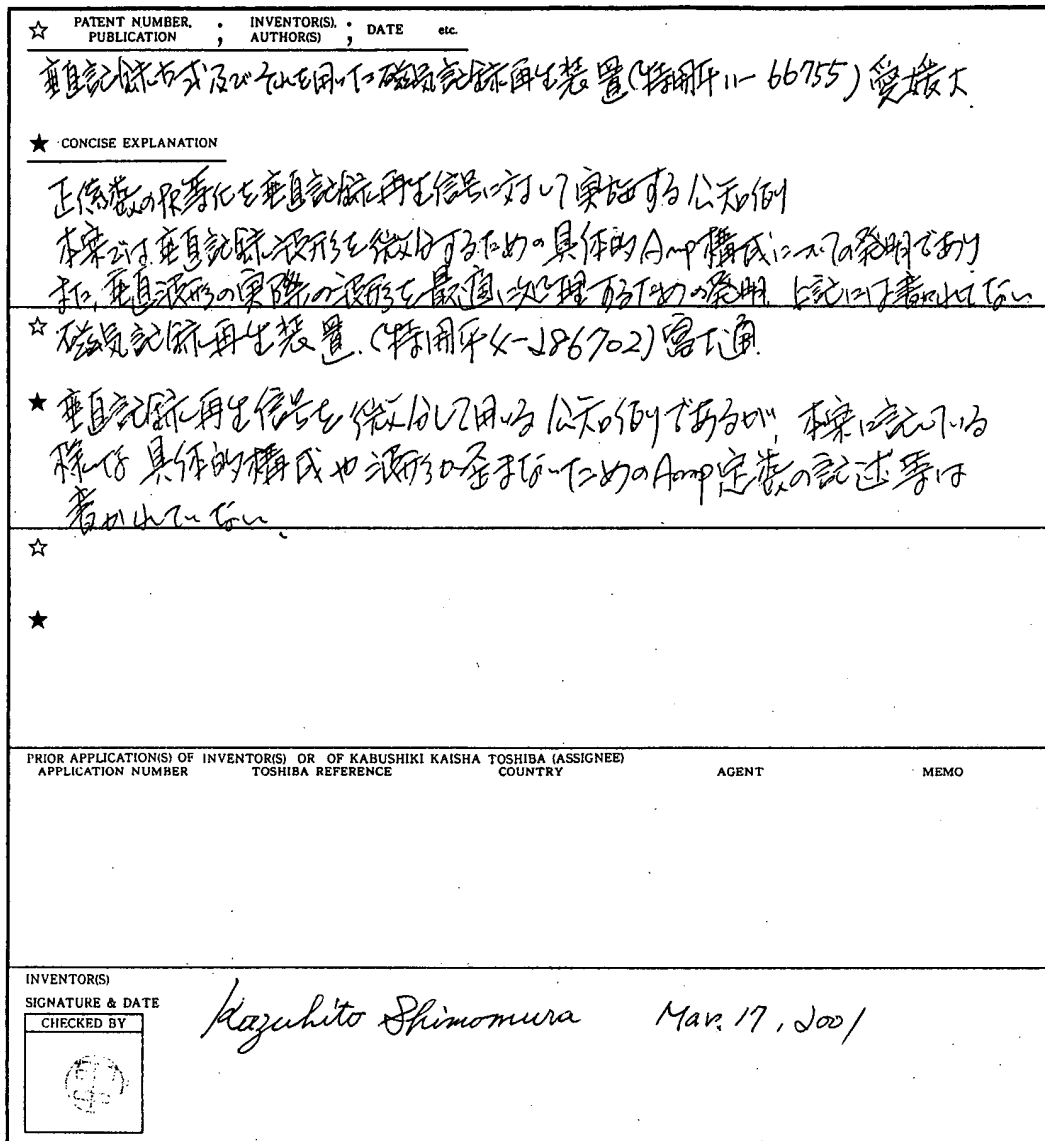 ☆ PATENT NUMBER, PUBLICATION ; INVENTOR(S), AUTHOR(S) ; DATE etc.
垂直記録方式及びそれを用いた磁気記録再生装置(特開平11-66755)愛媛大
★ CONCISE EXPLANATION
正係数のPR等化を垂直記録再生信号に対して実施する公知例
本案では垂直記録波形を微分するための具体的Amp構成についての発明であり
また、垂直波形の実際の波形を最適に処理するための発明 上記には書かれてない
☆ 磁気記録再生装置.(特開平4-286702)富士通
★ 垂直記録再生信号を微分して用いる公知例であるが、本案に記している
様な具体的構成や波形が歪まないためのAmp定数の記述等は
書かれていない、
☆
★
PRIOR APPLICATION(S) OF INVENTOR(S) OR OF KABUSHIKI KAISHA TOSHIBA (ASSIGNEE)
APPLICATION NUMBER TOSHIBA REFERENCE COUNTRY AGENT MEMO
INVENTOR(S)
SIGNATURE & DATE
Kazuhito Shimomura Mar. 17, 2001
CHECKED BY